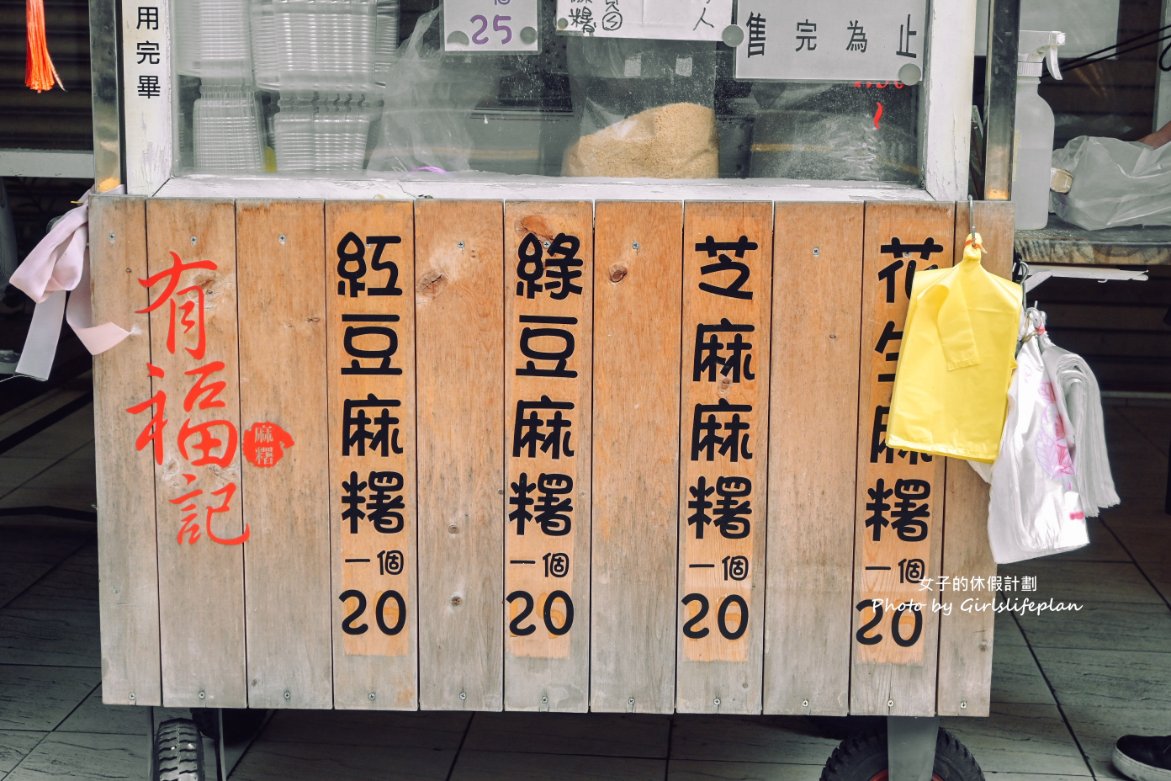 用完畢
25
售完為止
有福記
麻糬
紅豆麻糬一個20
綠豆麻糬一個20
芝麻麻糬一個20
花生麻糬一個20
女子的休假計劃
Photo by Girlslifeplan